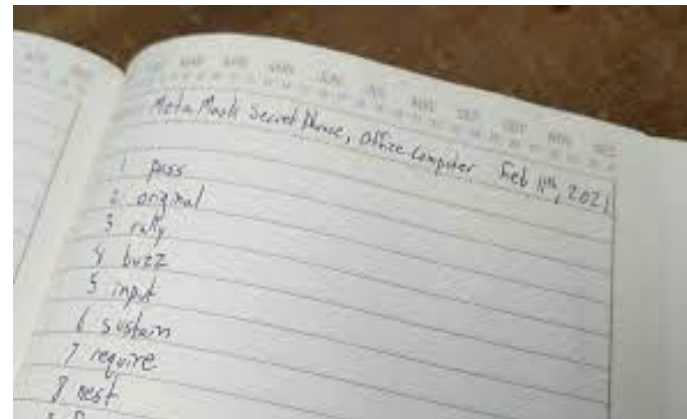 Meta Mask Secret Phrase, Office Computer Feb 11th, 2021
1 pass
2 original
3 rally
4 buzz
5 input
6 sustain
7 require
8 nest